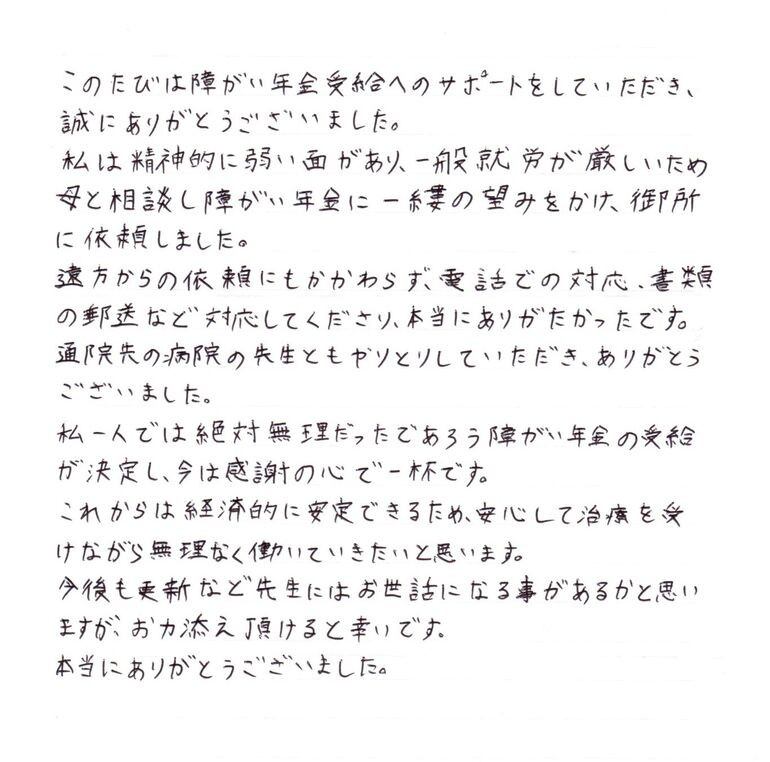 このたびは障がい年金受給へのサポートをしていただき、
誠にありがとうございました。
私は精神的に弱い面があり、一般就労が厳しいため
母と相談し障がい年金に一縷の望みをかけ、御所
に依頼しました。
遠方からの依頼にもかかわらず、電話での対応、書類
の郵送など対応してくださり、本当にありがたかったです。
通院先の病院の先生ともやりとりしていただき、ありがとう
ございました。
私一人では絶対無理だったであろう障がい年金の受給
が決定し、今は感謝の心で一杯です。
これからは経済的に安定できるため、安心して治療を受
けながら無理なく働いていきたいと思います。
今後も更新など先生にはお世話になる事があるかと思い
ますが、お力添え頂けると幸いです。
本当にありがとうございました。